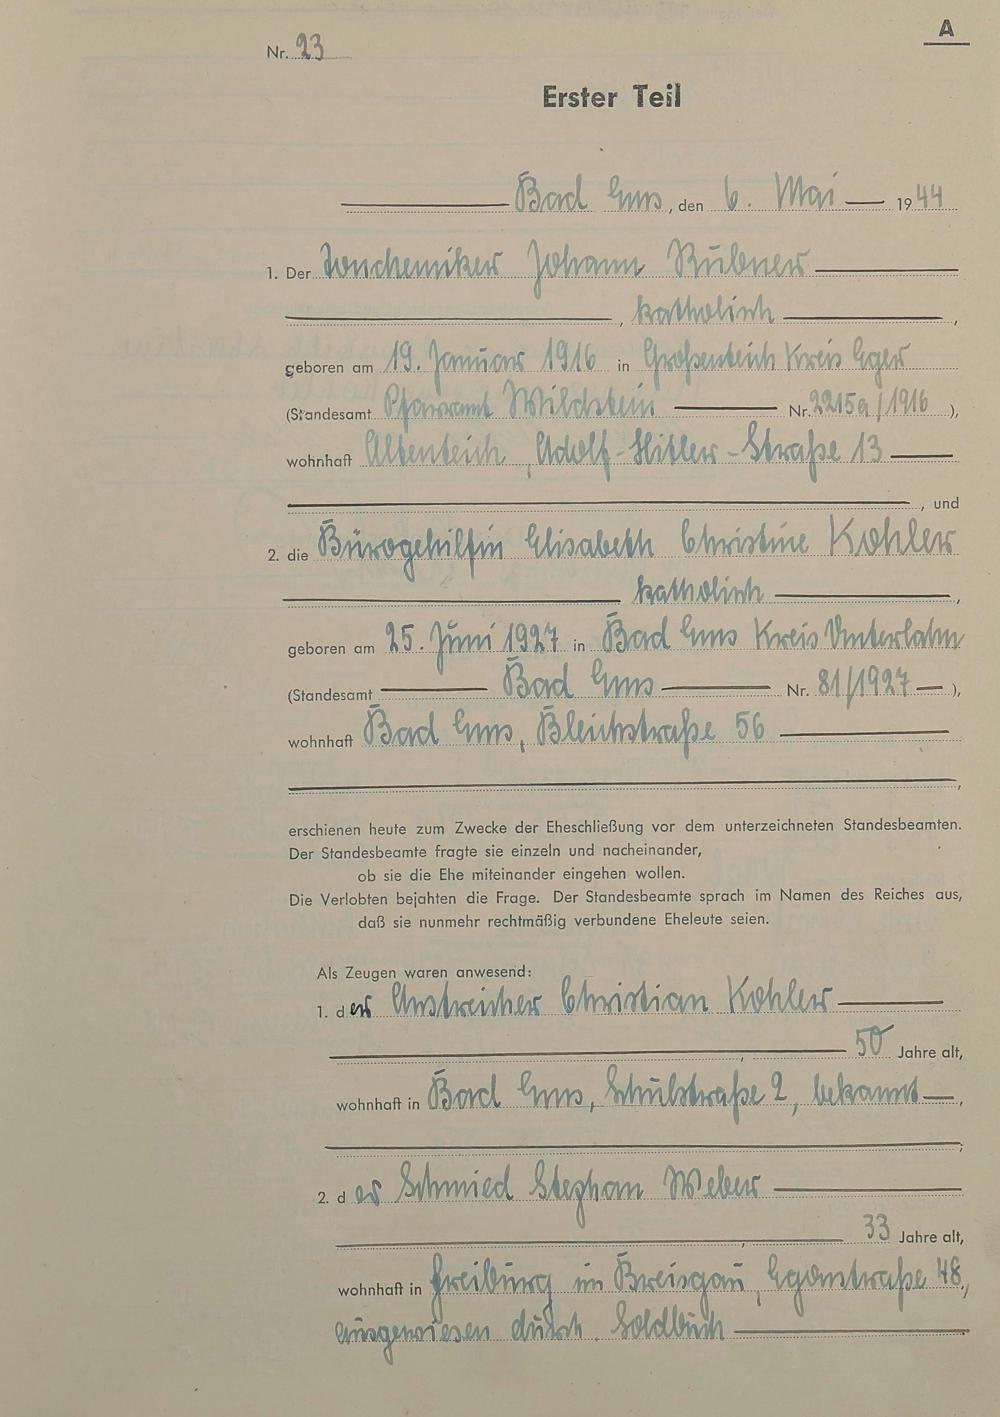 A
Nr. 23
Erster Teil
Bad Ems, den 6. Mai 1944
1. Der Tonchemiker Johann Rubner
, katholisch ,
geboren am 19. Januar 1916 in Großenteich Kreis Eger
(Standesamt Pfarramt Wildstein Nr. 2215a/1916 ),
wohnhaft Altenteich, Adolf-Hitler-Straße 13
, und
2. die Bürogehilfin Elisabeth Christine Kohler
katholisch ,
geboren am 25. Juni 1927 in Bad Ems Kreis Unterlahn
(Standesamt Bad Ems Nr. 81/1927 ),
wohnhaft Bad Ems, Bleichstraße 56
,
erschienen heute zum Zwecke der Eheschließung vor dem unterzeichneten Standesbeamten.
Der Standesbeamte fragte sie einzeln und nacheinander,
ob sie die Ehe miteinander eingehen wollen.
Die Verlobten bejahten die Frage. Der Standesbeamte sprach im Namen des Reiches aus,
daß sie nunmehr rechtmäßig verbundene Eheleute seien.
Als Zeugen waren anwesend:
1. der Anstreicher Christian Kohler
, 50 Jahre alt,
wohnhaft in Bad Ems, Schulstraße 2, bekannt ,
;
2. der Schmied Stephan Weber
, 33 Jahre alt,
wohnhaft in Freiburg im Breisgau, Egonstraße 48,
ausgewiesen durch Soldbuch